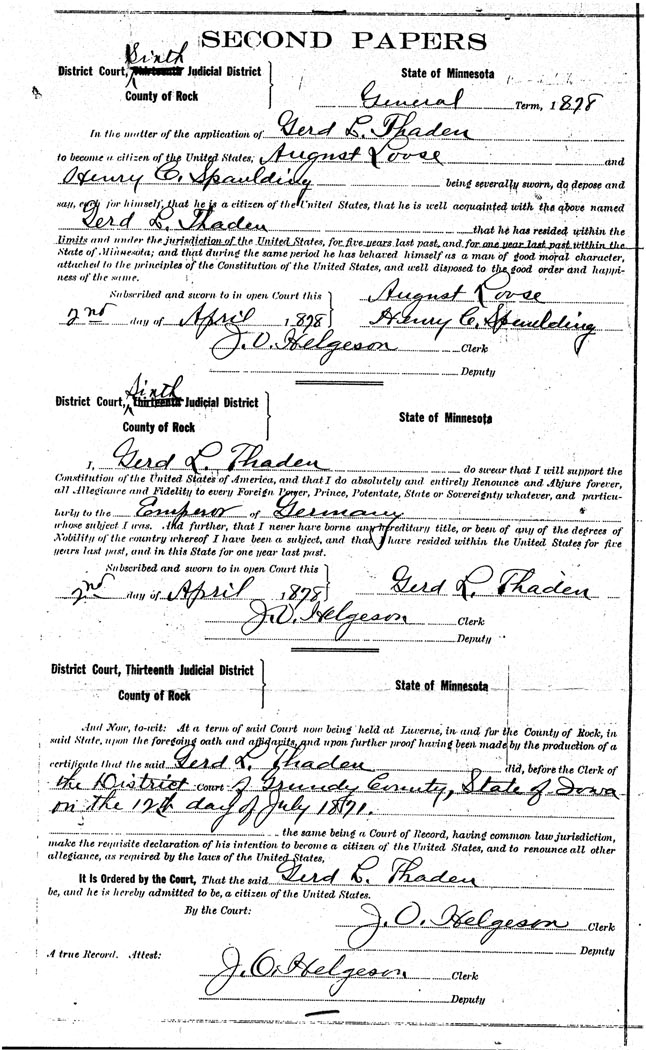 SECOND PAPERS
Sixth
District Court, Thirteenth Judicial District
County of Rock
State of Minnesota
General Term, 1878
In the matter of the application of Gerd L. Thaden
to become a citizen of the United States, August Loose and
Henry C. Spaulding being severally sworn, do depose and
say, each for himself, that he is a citizen of the United States, that he is well acquainted with the above named
Gerd L. Thaden that he has resided within the
limits and under the jurisdiction of the United States, for five years last past, and for one year last past within the
State of Minnesota; and that during the same period he has behaved himself as a man of good moral character,
attached to the principles of the Constitution of the United States, and well disposed to the good order and happi-
ness of the same.
Subscribed and sworn to in open Court this
2nd day of April 1878
August Loose
Henry C. Spaulding
J. O. Helgeson Clerk
Deputy
Sixth
District Court, Thirteenth Judicial District
County of Rock
State of Minnesota
I, Gerd L. Thaden do swear that I will support the
Constitution of the United States of America, and that I do absolutely and entirely Renounce and Abjure forever,
all Allegiance and Fidelity to every Foreign Power, Prince, Potentate, State or Sovereignty whatever, and particu-
larly to the Emperor of Germany
whose subject I was. And further, that I never have borne any hereditary title, or been of any of the degrees of
Nobility of the country whereof I have been a subject, and that I have resided within the United States for five
years last past, and in this State for one year last past.
Subscribed and sworn to in open Court this
2nd day of April 1878
Gerd L. Thaden
J. O. Helgeson Clerk
Deputy
District Court, Thirteenth Judicial District
County of Rock
State of Minnesota
And Now, to-wit: At a term of said Court now being held at Luverne, in and for the County of Rock, in
said State, upon the foregoing oath and affidavits, and upon further proof having been made by the production of a
certificate that the said Gerd L. Thaden did, before the Clerk of
the District Court of Grundy County, State of Iowa
on the 12th day of July 1871.
the same being a Court of Record, having common law jurisdiction,
make the requisite declaration of his intention to become a citizen of the United States, and to renounce all other
allegiance, as required by the laws of the United States,
It Is Ordered by the Court, That the said Gerd L. Thaden
be, and he is hereby admitted to be, a citizen of the United States.
By the Court:
J. O. Helgeson Clerk
Deputy
A true Record. Attest:
J. O. Helgeson Clerk
Deputy